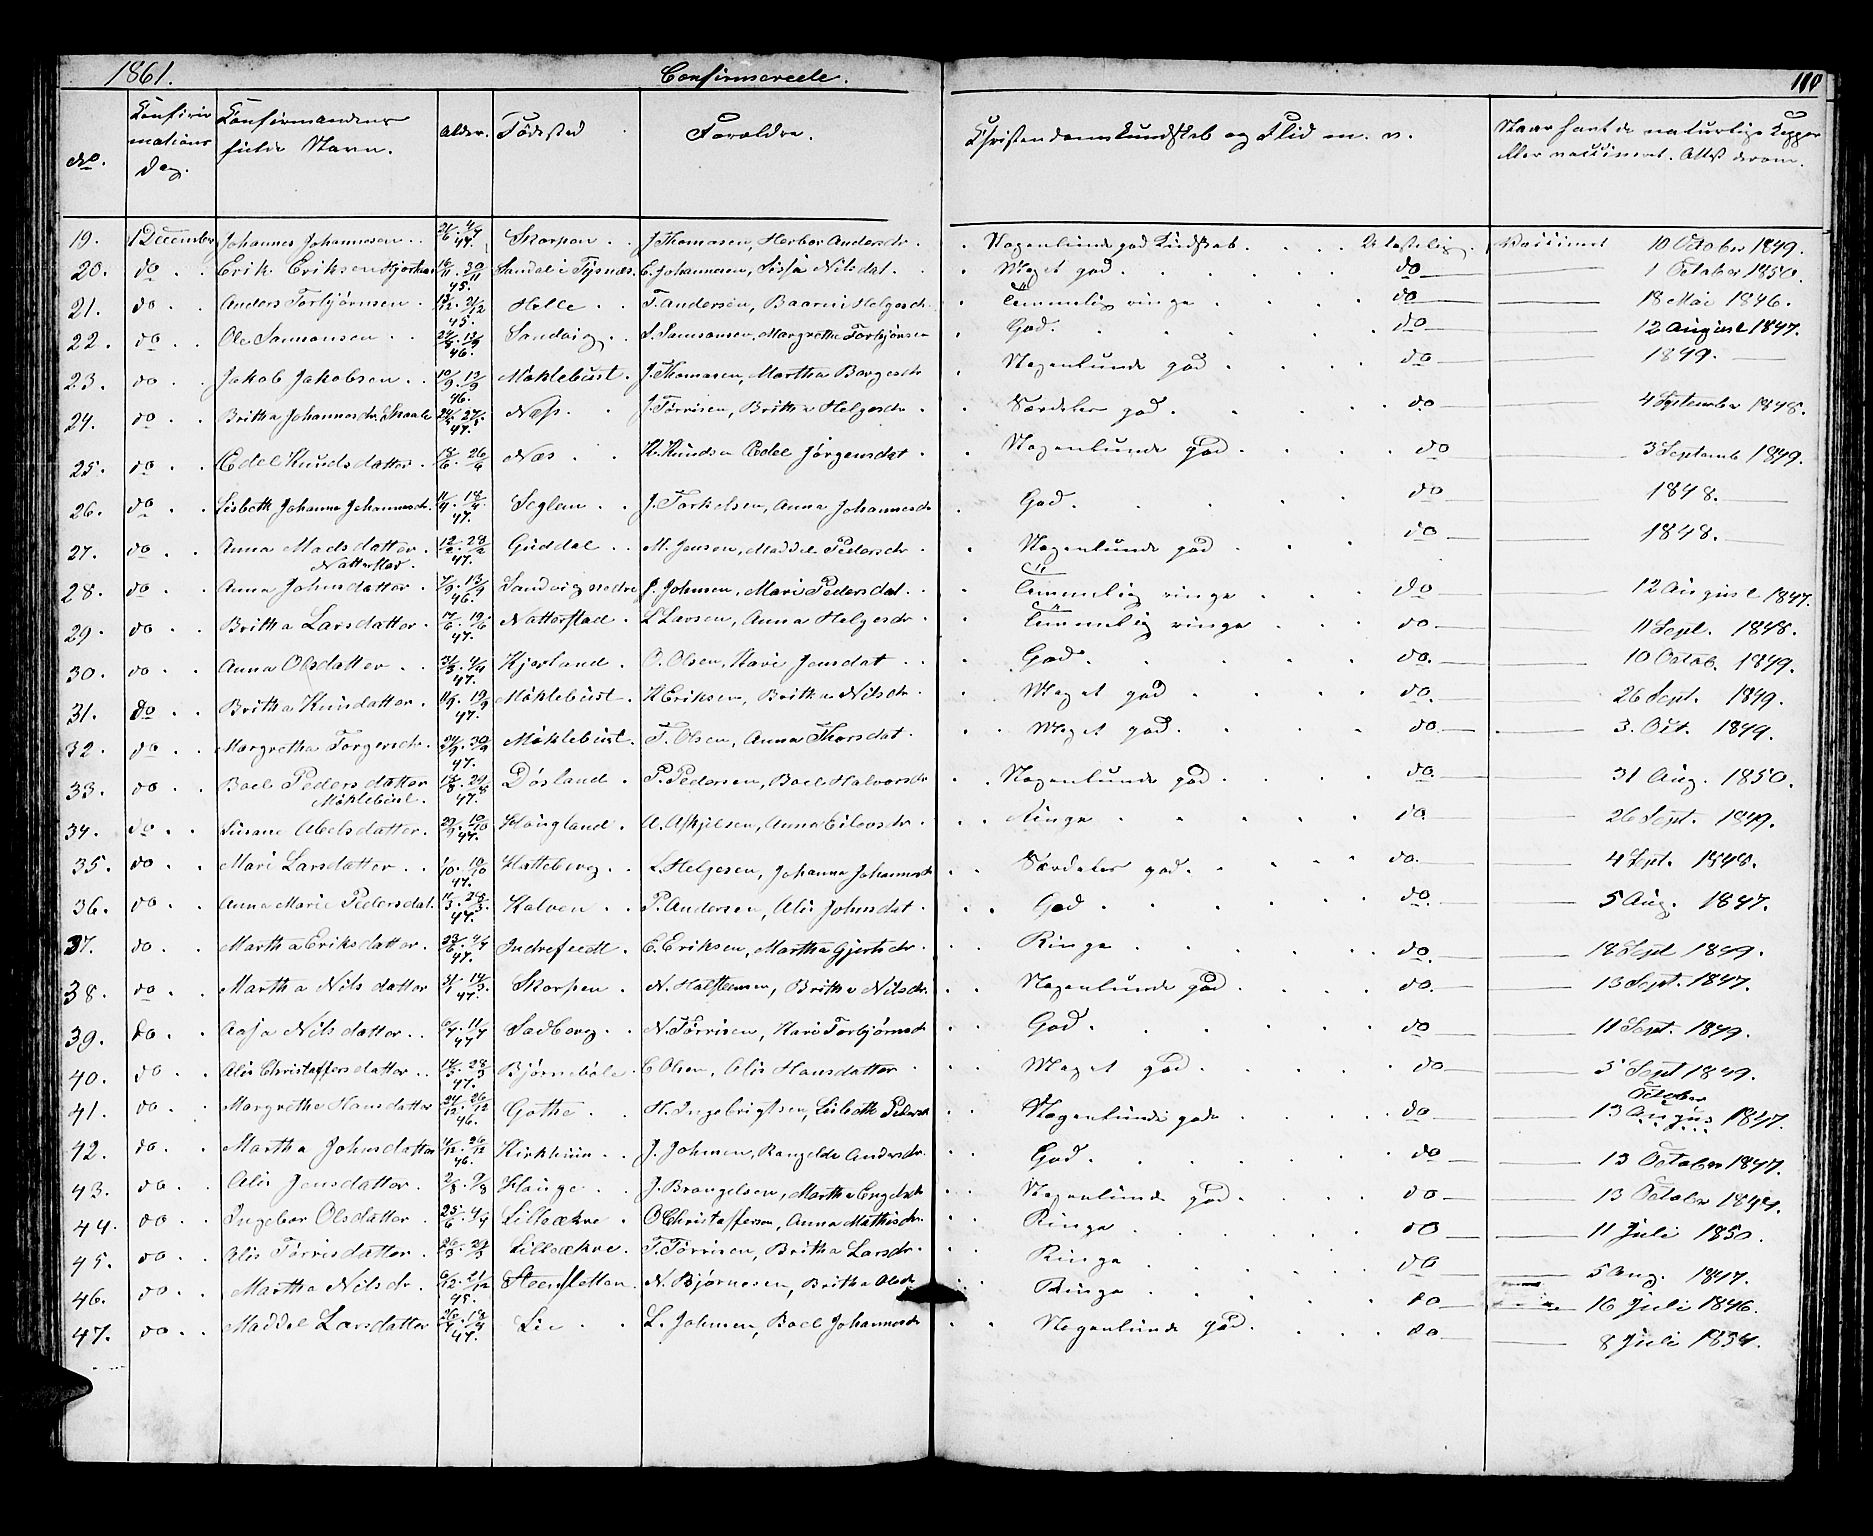 1861. Confirmerede. 110
No. Confirmations Dag. Confirmandens fulde Navn. Alder. Fødested Forældre. Christendomskundskab og Flid m. v. Naar havt de naturlige Kopper eller vaccineret. Attest derom.
19. 1 December Johannes Johannesen Skorpen J. Thomasen, Herbor Andersdr. Nogenlunde god Kundskab. Vaccineret 10 October 1849.
20. do Erik Eriksen Sandal i Tysnæs E. Johannesen, Nilsdat. Meget god do 1 October 1850.
21. do Anders Torbjørnsen 45. Helle T. Andersen, Baarni Helgesdr. Temmelig ringe do 18 Mai 1846.
22. do Ole Samsonsen 46. Sandvig S. Samsonsen, Margrethe Torbjørnsen God. do 12 August 1847.
23. do Jakob Jakobsen 10/9. 13/9 46. Møklebust. J. Thomasen, Martha Borgesdr. Nogenlunde god do 1849.
24. do Britha Johannesdr. Skaale 47. Næss. J. Tørrisen, Britha Helgesdr. Særdeles god. do 4 September 1848.
25. do Edel Knudsdatter 18/6. 26/6 Næs K. Knudsen Edel Jørgensdat Nogenlunde god do 3 Septemb 1849.
26. do Lisbeth Johanna Johannesdr. 11/4. 18/4 47. Seglem J. Torkelsen, Anna Johannesdr God. do 1848.
27. do Anna Madsdatter Natterstad. 12/2. 28/2 47. Guddal M. Jensen, Maddel Pedersdr Nogenlunde god do 1848.
28. do Anna Johnsdatter 7/9. 13/9 46. Sandvig nedre J. Johnsen, Mari Pedersdat. Temmelig ringe do 12 August 1847.
29. do Britha Larsdatter 17/6. 19/6 47. Natterstad L Larsen, Anna Helgesdr Temmelig ringe do 11 Sept. 1848.
30. do Anna Olsdatter 31/3. 4/4 47. Kjerland O. Olsen, Kari Jensdat God do. 10 Octob. 1849.
31. do Britha Knudatter 11/9. 19/9 47. Møklebust K Eriksen, Britha Nilsdr Meget god do. 26 Sept. 1849.
32. do Margretha Torgersdr. 47. Møklebust. T. Olsen, Anna Thorsdat Meget god. do 3. Oct. 1849.
33. do Boel Pedersdatter Møklebust. 47. Døsland P. Pedersen, Boel Halvorsdr Nogenlunde god do. 31 Aug. 1850.
34. do Susane Abelsdatter. 47. Haugland A. Askjelsen, Anna Eilevsdr Ringe do. 26 Sept. 1849.
35. do Mari Larsdatter 1/10. 10/10 47. Hatteberg L. Helgesen, Johanna Johannesdr Særdeles god. do. 4 Sept. 1848.
36. do Anna Marie Pedersdat. 47. Kalven P. Andersen, Alis Johnsdat God do. 5 Aug. 1847.
37. do Martha Eriksdatter. 47. Indrefedt E. Eriksen, Martha Gjertsdr Ringe do. 18 Sept 1849.
38. do Martha Nilsdatter 47. Skorpen N. Halsteinsen, Britha Nilsdr. Nogenlunde god do. 13 Sept. 1847.
39. do Aasa Nilsdatter 47 Sadberg N. Tørrisen, Kari Torbjørnsdr God do 11 Sept. 1849.
40. do Alis Christoffersdatter 47. Bjørnebøle C Olsen, Alis Hansdatter Meget God do 5 Sept 1849.
41. do Margrethe Hansdatter 24/12. 26/12 46. Gothe H. Ingebrigtsen, Lisbeth Pedersdr Nogenlunde gode do October 13 August 1847.
42. do Martha Johnsdatter 46. Kirkhuus J. Johnsen, Rangelda Andersdr. God do 13 October 1847.
43. do Alis Jensdatter 2/8. 9/8 Hauge J. Brangelsen, Martha Engelsdr Nogenlunde god do 13 October 1847.
44. do Ingebor Olsdatter 25/6. 4/7 Lilleækre O Christoffersen, Anna Mathisdr. Ringe do 11 Juli 1850.
45. do Alis Tørrisdatter. Lilleækre. T. Tørrisen, Britha Larsdr Ringe do 5 Aug. 1847.
46. do Martha Nilsdr. 45. Steensletten N. Bjørnesen, Britha Olsdr Ringe do 16 Juli 1846.
47. do Maddel Larsdatter 47. Lie L. Johnsen, Boel Johannesdr Nogenlunde god. do 8 Juli 1854.